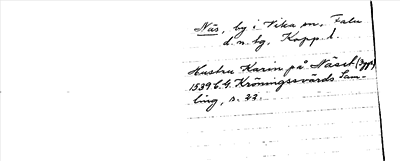 Näs, by i Vika sn, Falu
d.m.bg, Kopp. l.
Hustru Karin på Näset (3391)
1539 C.G. Kröningssvärds Sam-
ling, s. 33.